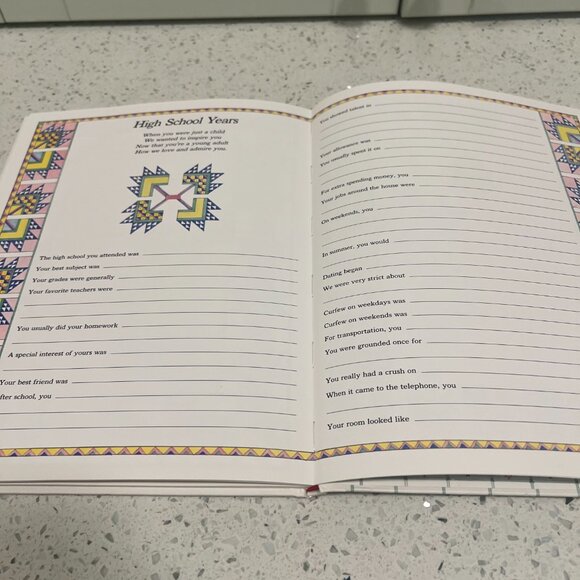 High School Years
When you were just a child
We wanted to inspire you
Now that you're a young adult
How we love and admire you.
The high school you attended was
Your best subject was
Your grades were generally
Your favorite teachers were
You usually did your homework
A special interest of yours was
Your best friend was
fter school, you
You showed talent in
Your allowance was
You usually spent it on
For extra spending money, you
Your jobs around the house were
On weekends, you
In summer, you would
Dating began
We were very strict about
Curfew on weekdays was
Curfew on weekends was
For transportation, you
You were grounded once for
You really had a crush on
When it came to the telephone, you
Your room looked like